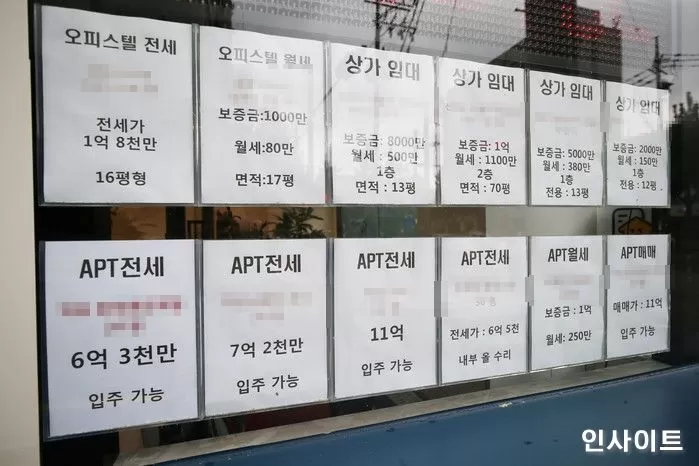 오피스텔 전세
전세가
1억 8천만
16평형
오피스텔 월세
보증금:1000만
월세:80만
면적:17평
상가 임대
보증금: 8000만
월세 : 500만
1층
면적 : 13평
상가 임대
보증금: 1억
월세 : 1100만
2층
면적 : 70평
상가 임대
보증금: 5000만
월세 : 380만
1층
전용 : 13평
상가 임대
보증금: 2000만
월세 : 150만
1층
전용 : 12평
APT전세
6억 3천만
입주 가능
APT전세
7억 2천만
입주 가능
APT전세
11억
입주 가능
APT전세
전세가 : 6억 5천
내부 올 수리
APT월세
보증금 : 1억
월세 : 250만
APT매매
매매가 : 11억
입주 가능
인사이트